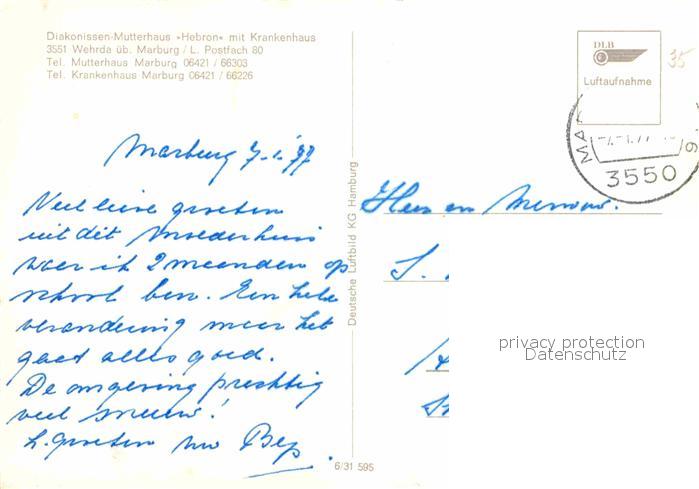 Diakonissen-Mutterhaus »Hebron« mit Krankenhaus
3551 Wehrda üb. Marburg / L. Postfach 80
Tel. Mutterhaus Marburg 06421 / 66303
Tel. Krankenhaus Marburg 06421 / 66226
DLB
Luftaufnahme
35
3550
Marburg 7-1-'77
Veel lieve groeten
uit dit Moederhuis
waar ik 2 maanden op
school ben. Een hele
verandering maar het
gaat alles goed.
De omgeving prachtig
veel sneeuw!
h. groeten Bep.
Heer en Mevrouw.
S.
Deutsche Luftbild KG Hamburg
6/31 595
privacy protection
Datenschutz